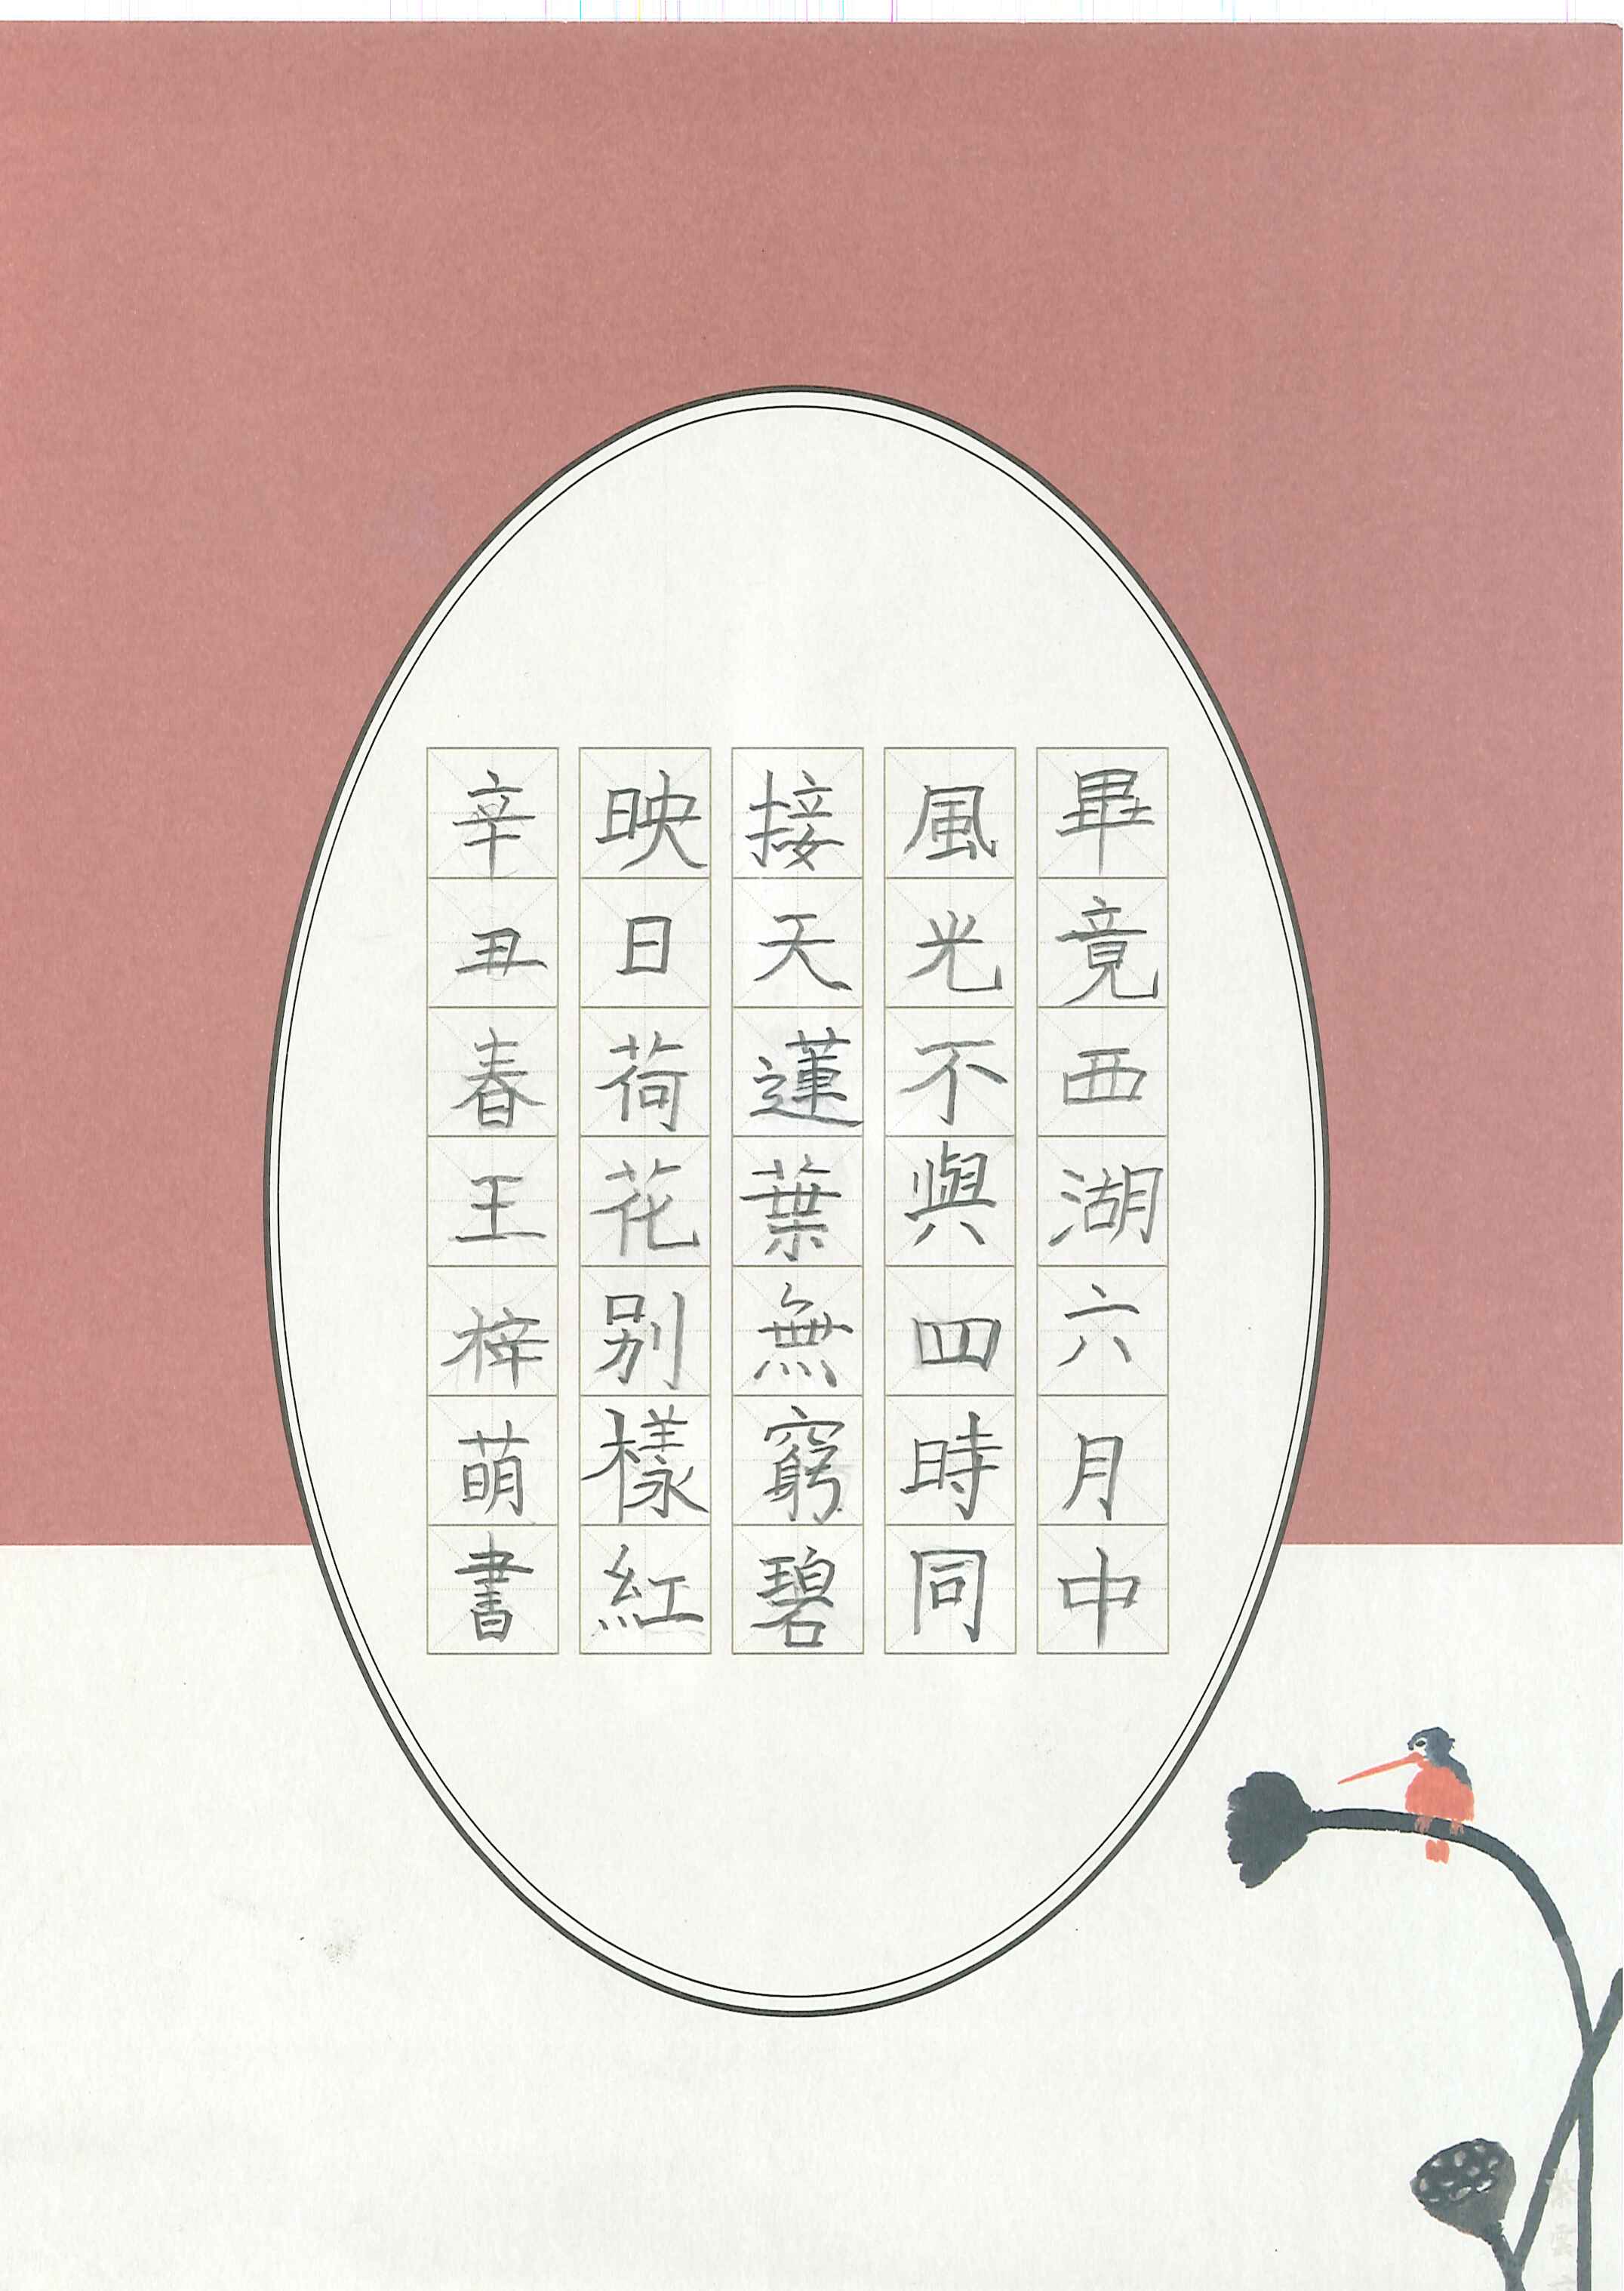 畢竟西湖六月中
風光不與四時同
接天蓮葉無窮碧
映日荷花别樣紅
辛丑春王梓萌書